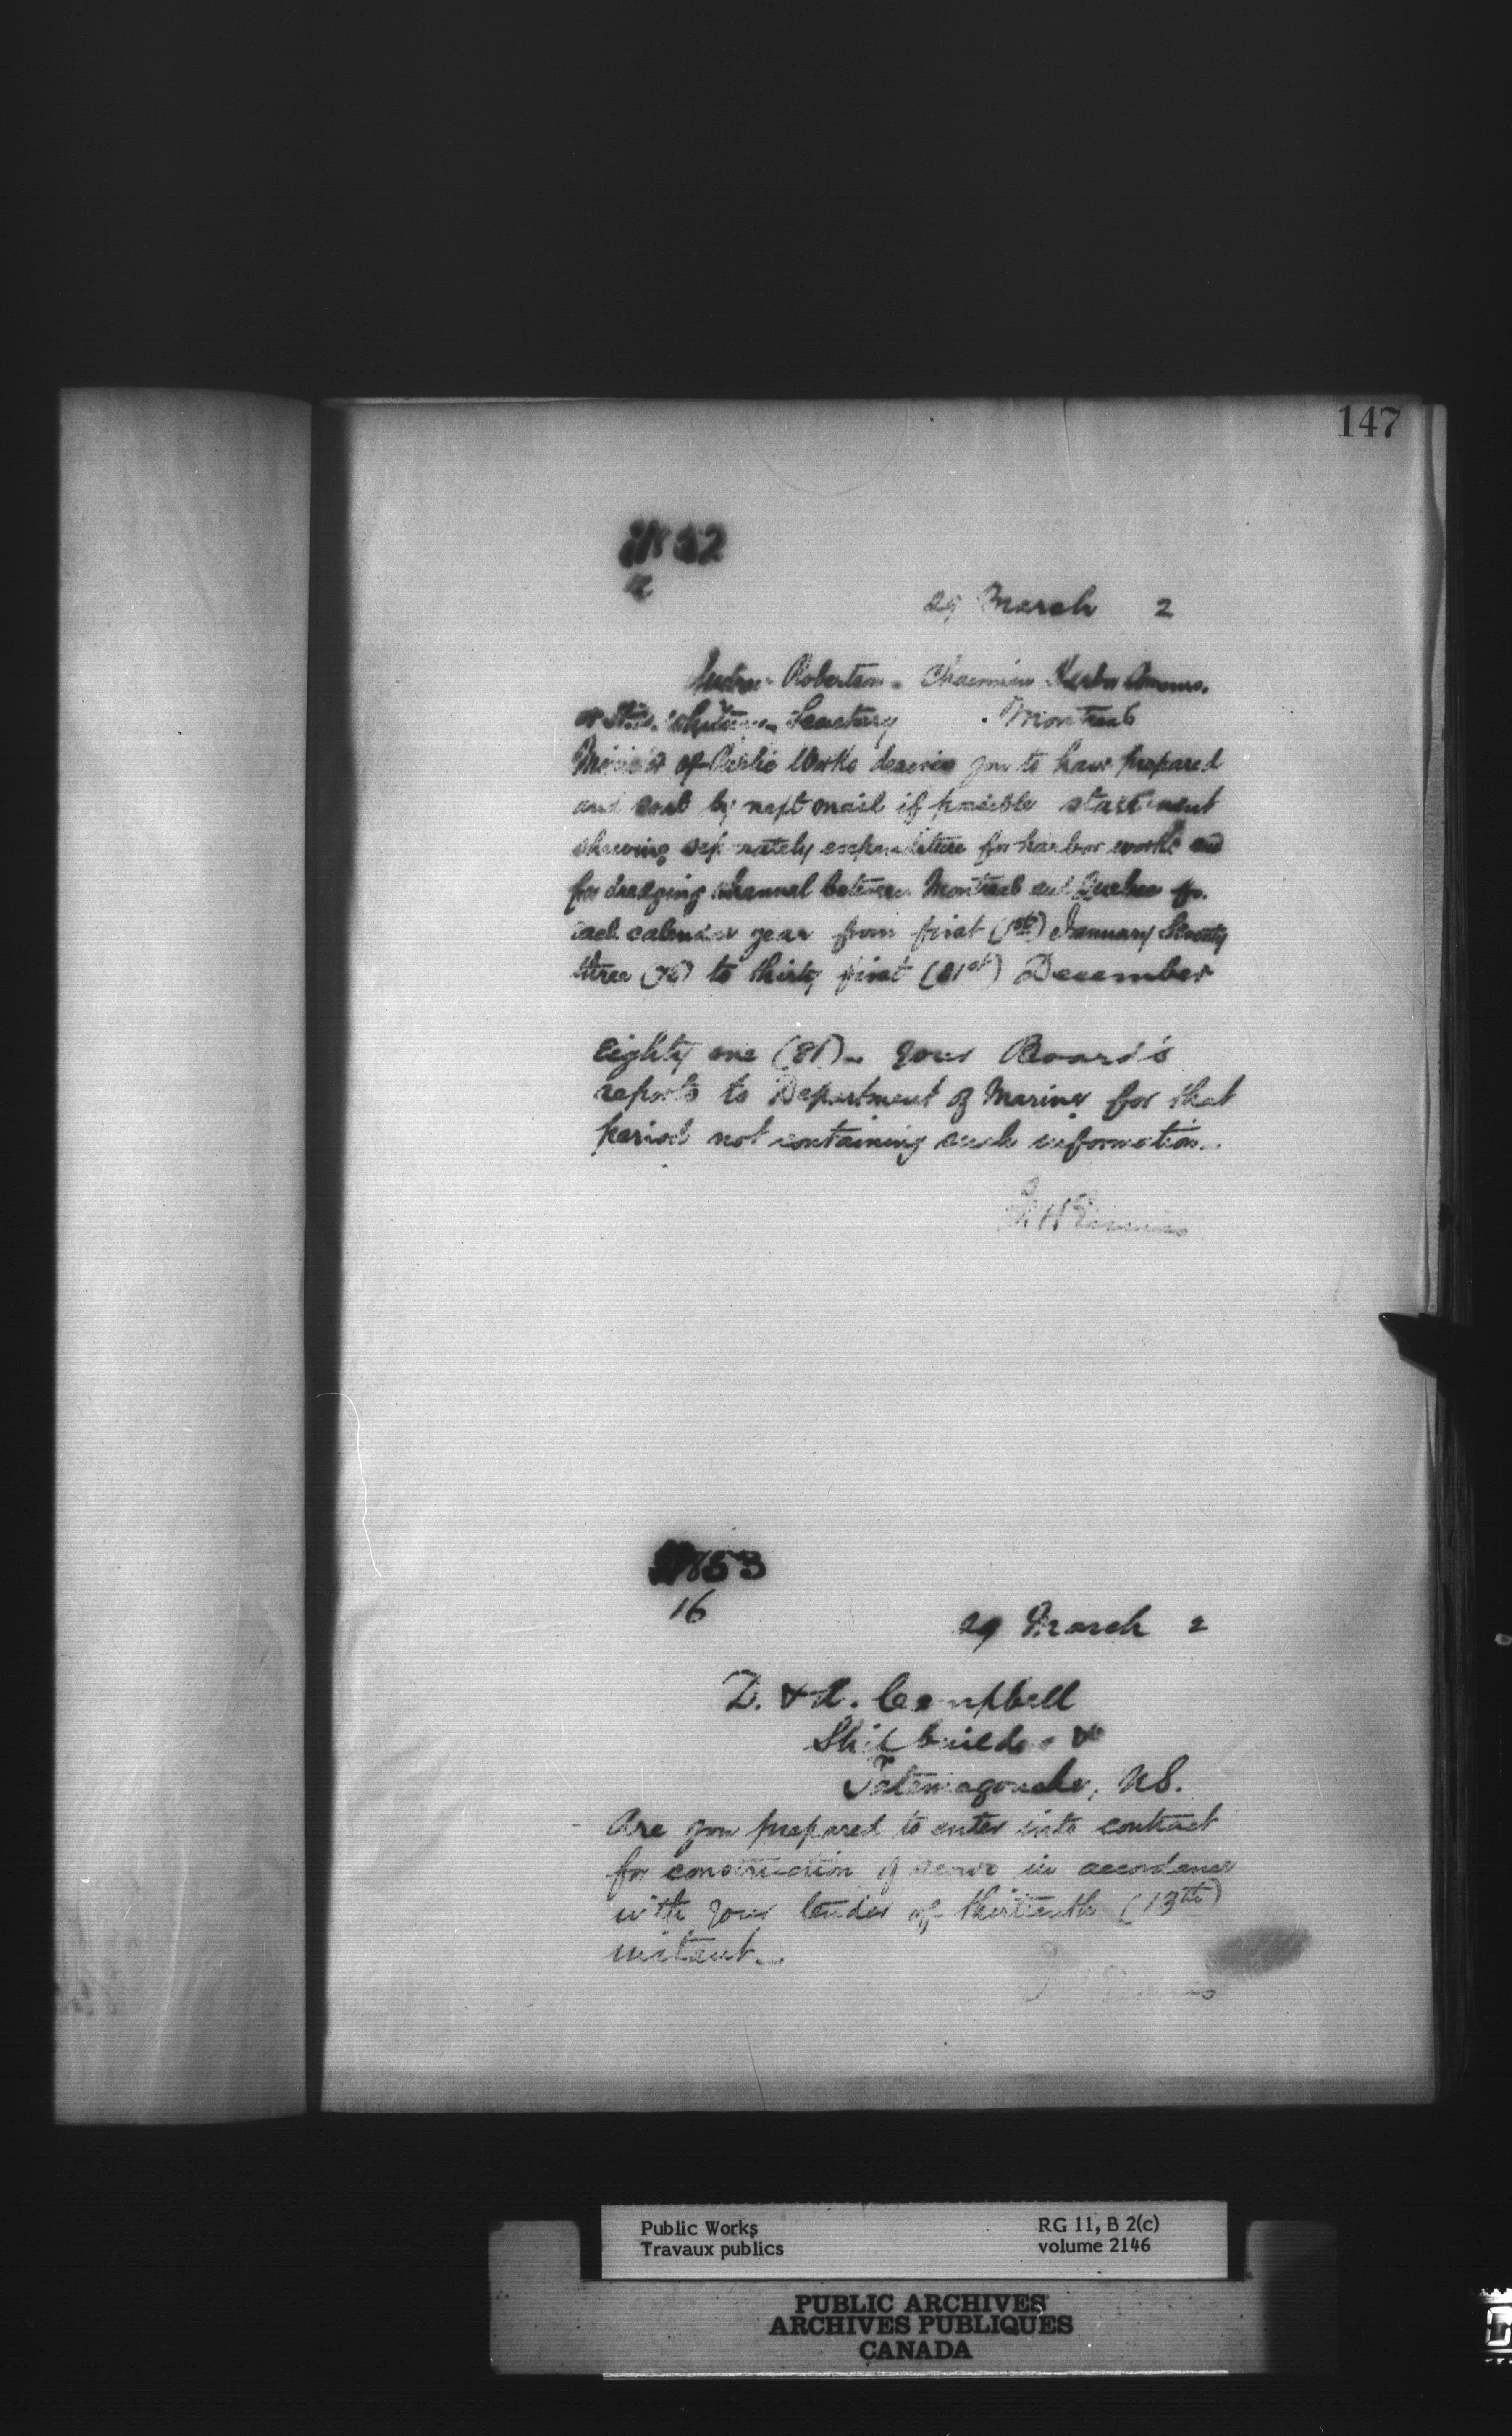 147
29 March 2
Andrew Robertson - Chairman Harbor Commrs.
or Secretary Montreal
Minister of Public Works desires you to have prepared
and sent by next mail if possible statement
shewing separately expenditure for harbor works and
for dredging channel between Montreal and Quebec for
each calendar year from first (1st) January Seventy
three (73) to thirty first (31st) December
Eighty one (81) - your Board's
reports to Department of Marine for that
period not containing such information.
1853
16
29 March 2
D. & A. Campbell
Ship builders &c
Tatamagouche, N.S.
Are you prepared to enter into contract
for construction of scows in accordance
with your tender of thirteenth (13th)
instant.
Public Works
Travaux publics
RG 11, B 2(c)
volume 2146
PUBLIC ARCHIVES
ARCHIVES PUBLIQUES
CANADA